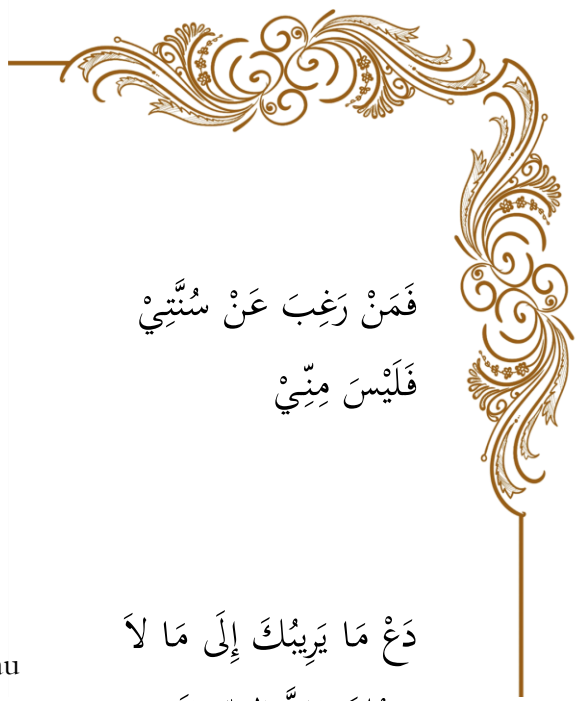 فَمَنْ رَغِبَ عَنْ سُنَّتِيْ
فَلَيْسَ مِنِّيْ
دَعْ مَا يَرِيبُكَ إِلَى مَا لاَ